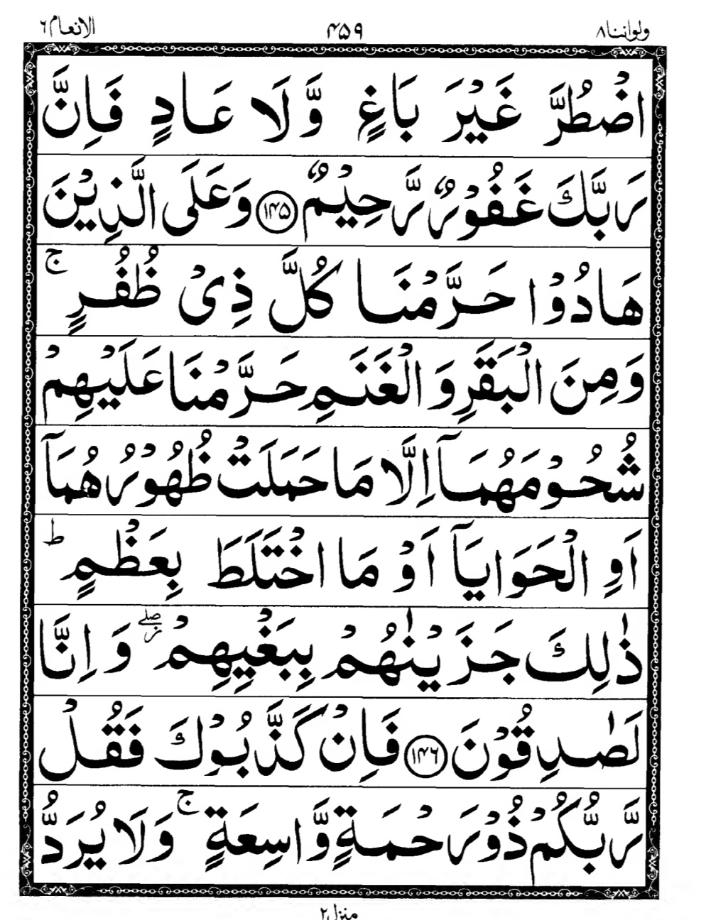 ولواننا ۸ ۴۵۹ الانعام ۶
اضْطُرَّ غَيْرَ بَاغٍ وَّلَا عَادٍ فَاِنَّ
رَبَّكَ غَفُوْرٌ رَّحِيْمٌ ﴿۱۴۵﴾ وَعَلَى الَّذِيْنَ
هَادُوْا حَرَّمْنَا كُلَّ ذِىْ ظُفُرٍ ۚ
وَمِنَ الْبَقَرِ وَ الْغَنَمِ حَرَّمْنَا عَلَيْهِمْ
شُحُوْمَهُمَاۤ اِلَّا مَا حَمَلَتْ ظُهُوْرُهُمَاۤ
اَوِ الْحَوَايَاۤ اَوْ مَا اخْتَلَطَ بِعَظْمٍ ؕ
ذٰلِكَ جَزَيْنٰهُمْ بِبَغْيِهِمْ ۖ ز وَ اِنَّا
لَصٰدِقُوْنَ ﴿۱۴۶﴾ فَاِنْ كَذَّبُوْكَ فَقُلْ
رَّبُّكُمْ ذُوْ رَحْمَةٍ وَّاسِعَةٍ ۚ وَلَا يُرَدُّ
منزل ۲